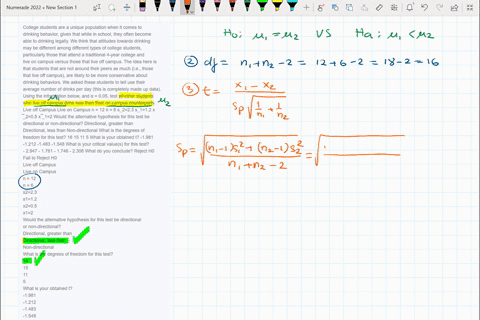 Numerade 2022 » New Section 1
College students are a unique population when it comes to
drinking behavior, given that while in school, they often become
able to drinking legally. We think that attitudes towards drinking
may be different among different types of college students,
particularly those that attend a traditional 4-year college and
live on campus versus those that live off campus. The idea here is
that students that are not around their peers as much (i.e., those
that live off campus), are likely to be more conservative about
drinking behaviors. We asked these students to tell us their
average number of drinks per day (this is completely made up data).
Using the information below, and α = 0.05, test whether students
who live off campus drink less than their on campus counterparts.
μ₁ μ₂
Live off Campus Live on Campus n = 12 n = 6
Would the alternative hypothesis for this test be
directional or non-directional? Directional, greater than
Directional, less than Non-directional What is the degrees of
freedom for this test? 16 15 11 5 What is your obtained t? -1.981
-1.212 -1.483 -1.648 What is your critical value(s) for this test?
- 2.947 - 1.761 - 1.746 - 2.358 What do you conclude? Reject H0
Fail to Reject H0
Live off Campus
Live on Campus
n = 12
n = 6
s2=2.3
s1=1.2
x2=0.5
x1=2
Would the alternative hypothesis for this test be directional
or non-directional?
Directional, greater than
Directional, less than
Non-directional
What is the degrees of freedom for this test?
16
15
11
5
What is your obtained t?
-1.981
-1.212
-1.483
-1.648
H₀: μ₁ = μ₂ VS Ha: μ₁ < μ₂
② df = n₁ + n₂ - 2 = 12 + 6 - 2 = 18 - 2 = 16
③ t = x̄₁ - x̄₂ / Sp √(1/n₁ + 1/n₂)
Sp = √((n₁-1)s₁² + (n₂-1)s₂² / n₁ + n₂ - 2) = √